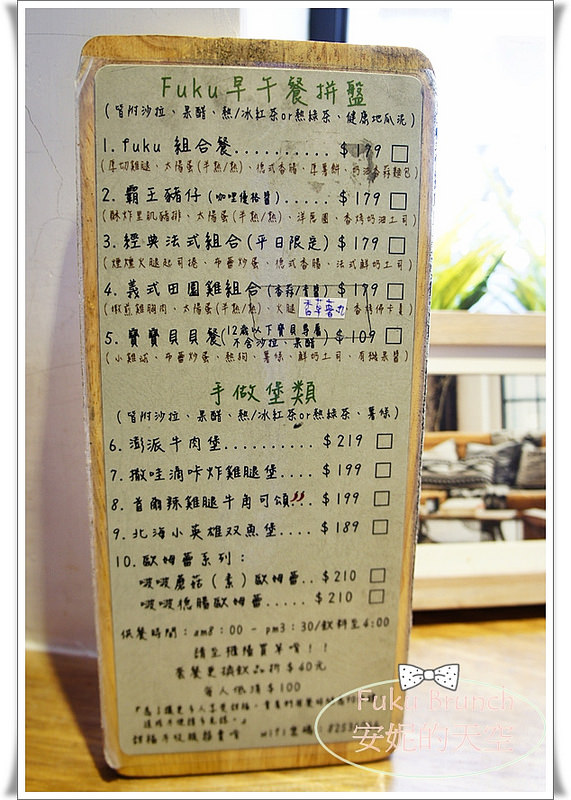 Fuku早午餐拼盤
(皆附沙拉、果醋、熱/冰紅茶or熱綠茶、健康地瓜泥)
1. fuku 組合餐............$179
(厚切雞腿、太陽蛋(半熟/熟)、德式香腸、厚薯餅、奶油香蒜麵包)
2. 霸王豬仔(咖哩優格醬)......$179
(酥炸里肌豬排、太陽蛋(半熟/熟)、洋芭圈、香烤奶油土司)
3. 經典法式組合(平日限定)$179
(煙燻火腿起司捲、布蕾炒蛋、德式香腸、法式鮮奶土司)
4. 義式田園雞組合(香蒜/青醬)$179
(嫩煎雞胸肉、太陽蛋(半熟/熟)、火腿
香草薯丸
5. 寶寶貝貝餐(12歲以下寶貝專屬
不含沙拉、果醋)$109
(小雞塊、布蕾炒蛋、熱狗、薯條、鮮奶土司、有機果醬)
手做堡類
(皆附沙拉、果醋、熱/冰紅茶or熱綠茶、薯條)
6. 澎派牛肉堡..........$219
7. 撒哇滴咔炸雞腿堡....$199
8. 首爾辣雞腿牛角可頌...$199
9. 北海小英雄双魚堡....$189
10. 歐姆蕾系列:
啵啵蘑菇(素)歐姆蕾..$210
啵啵德腸歐姆蕾.....$210
供餐時間:am8:00 - pm3:30/飲料至4:00
請至櫃檯買單唷!!
套餐更換飲品折$40元
每人低消$100
Fuku Brunch
安妮的天空